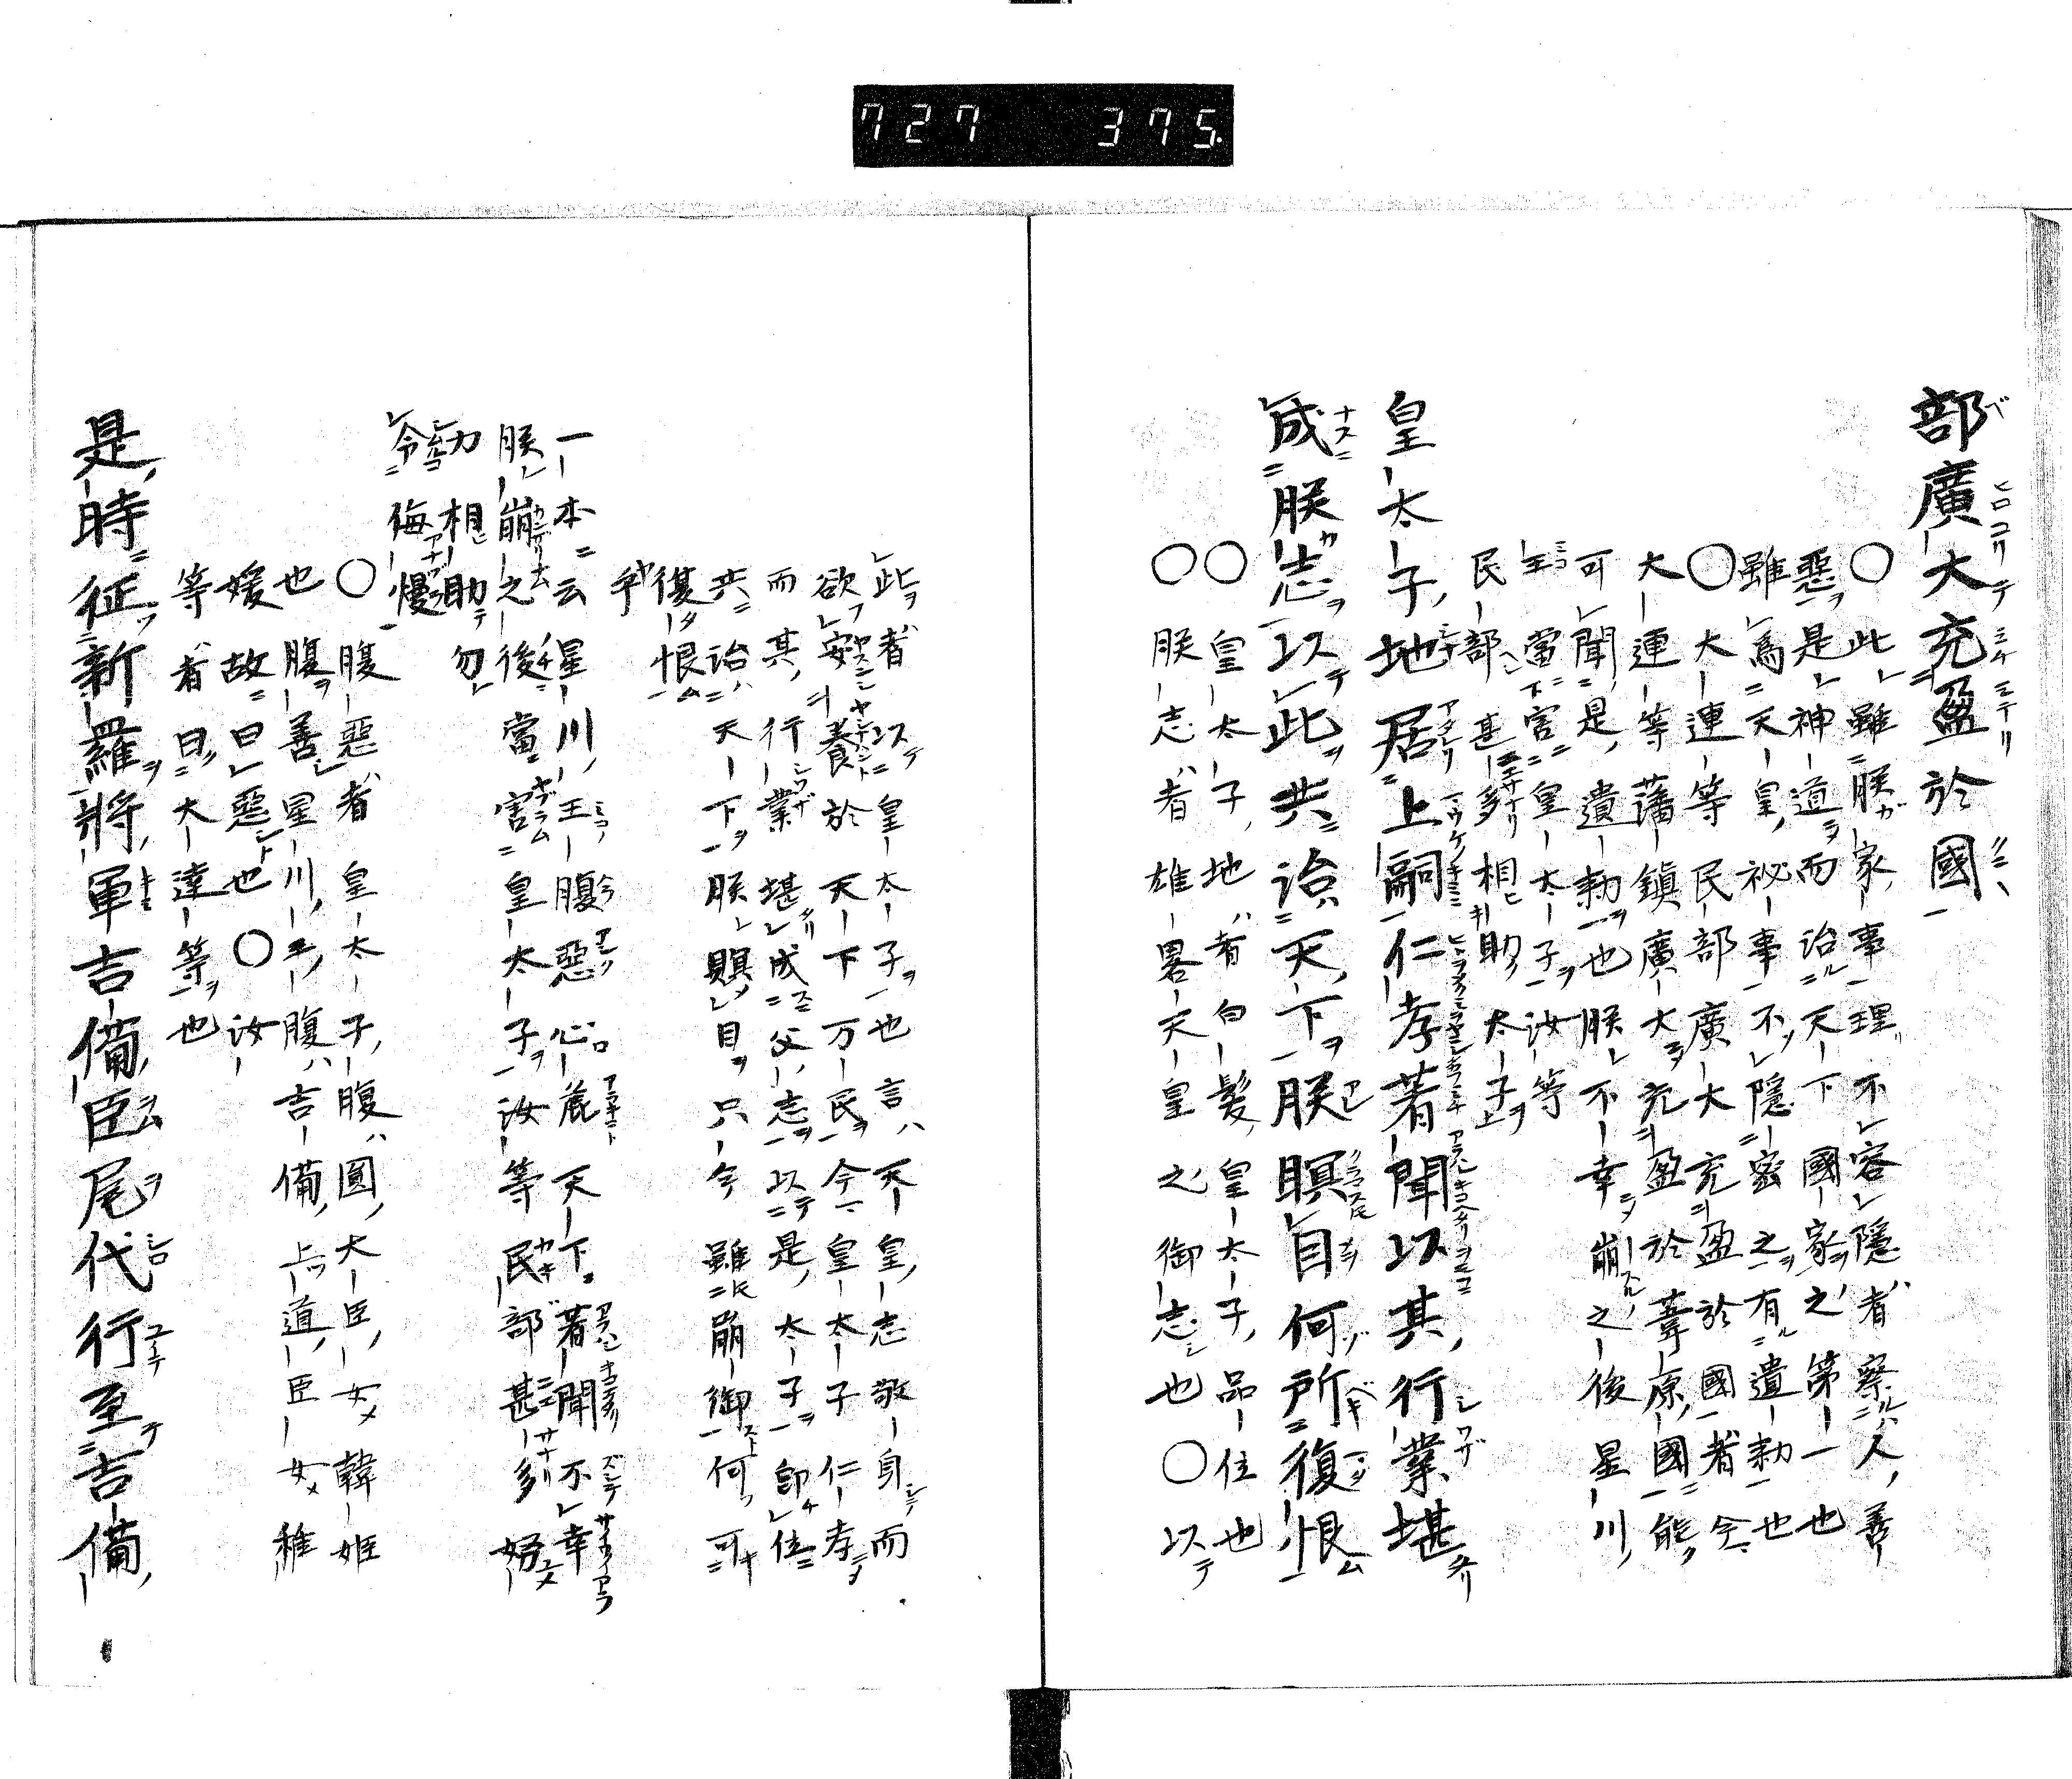 727 375.
部廣大充盈於國
○此雖朕家事理不容隱者察人善
惡是神道而治天下國家之第一也
雖爲天皇祕事不隱密之有遺勅也
○大連等民部廣大充盈於國者今
大連等藩鎮廣大充盈於葦原國能
可聞是遺勅也朕不幸崩之後星川
王當害皇太子汝等
民部甚多相助太子
皇太子地居上嗣仁孝著聞以其行業堪
成朕志以此共治天下朕瞑目何所復恨
○皇太子地者白髮皇太子品位也
○朕志者雄畧天皇之御志也○以
此者以皇太子也言天皇志敬身而
欲安養於天下万民今皇太子仁孝
而其行業堪成父志以是太子即位
共治天下朕瞑目只今雖崩御何可
復恨乎
一本云星川王腹惡心麁天下著聞不幸
朕崩之後當害皇太子汝等民部甚多努
力相助勿
令侮慢
○腹惡者皇太子腹圓大臣女韓姬
也腹善星川王腹吉備上道臣女稚
媛故曰惡也○汝
等者曰大連等也
是時征新羅將軍吉備臣尾代行至吉備